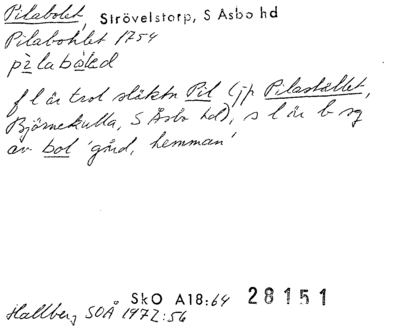 Pilabolet, Strövelstorp, S Åsbo hd
Pilabohlet 1754
pìlabòled
f l är trol släktn Pil (jp Pilastället,
Björnekulla, S Åsbo hd), s l är b sg
av bol 'gård, hemman'
SkO A18:64 28151
Hallberg SOÅ 1972:56